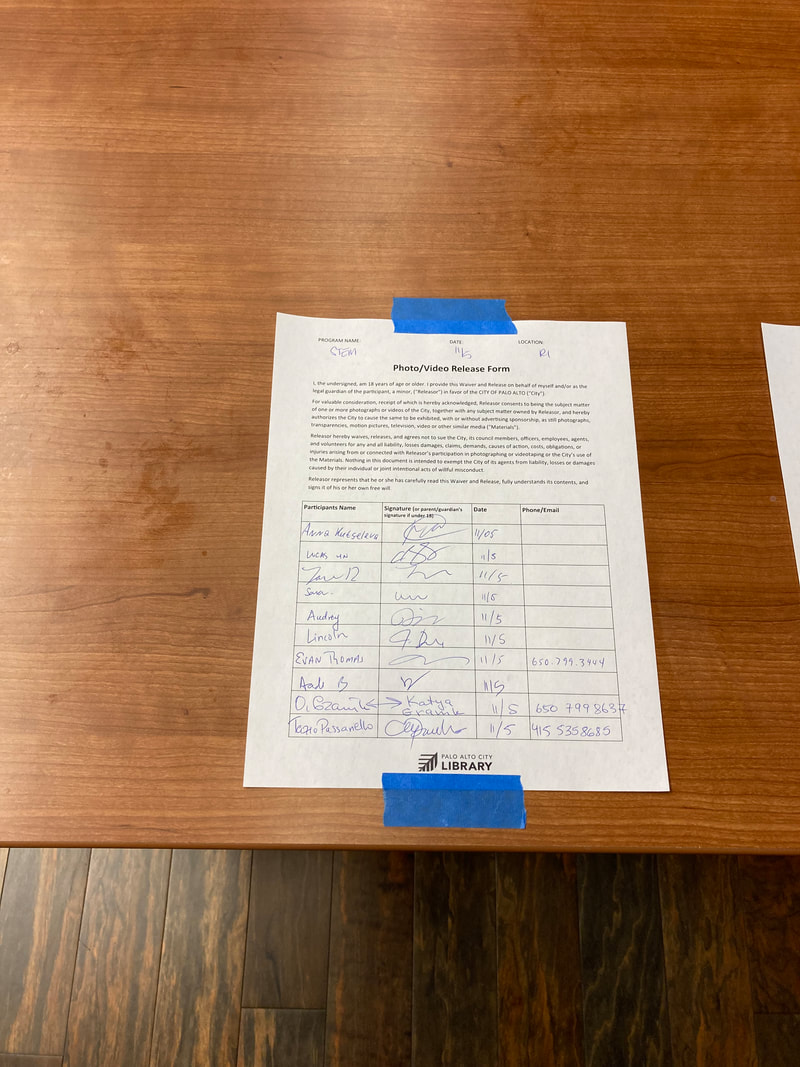 PROGRAM NAME: DATE: LOCATION:
STEM 11/5 R1
Photo/Video Release Form
I, the undersigned, am 18 years of age or older. I provide this Waiver and Release on behalf of myself and/or as the
legal guardian of the participant, a minor, ("Releasor") in favor of the CITY OF PALO ALTO ("City").
For valuable consideration, receipt of which is hereby acknowledged, Releasor consents to being the subject matter
of one or more photographs or videos of the City, together with any subject matter owned by Releasor, and hereby
authorizes the City to cause the same to be exhibited, with or without advertising sponsorship, as still photographs,
transparencies, motion pictures, television, video or other similar media ("Materials").
Releasor hereby waives, releases, and agrees not to sue the City, its council members, officers, employees, agents,
and volunteers for any and all liability, losses damages, claims, demands, causes of action, costs, obligations, or
injuries arising from or connected with Releasor's participation in photographing or videotaping or the City's use of
the Materials. Nothing in this document is intended to exempt the City of its agents from liability, losses or damages
caused by their individual or joint intentional acts of willful misconduct.
Releasor represents that he or she has carefully read this Waiver and Release, fully understands its contents, and
signs it of his or her own free will.
Participants Name Signature (or parent/guardian's Date Phone/Email
signature if under 18)
Anna 11/05
Lucas 11/5
11/5
Sara 11/5
Audrey 11/5
Lincoln 11/5
EVAN THOMAS 11/5 650.799.3444
B 11/5
Katya 11/5 650 799 8637
Passanello 11/5 415 5358685
PALO ALTO CITY
LIBRARY